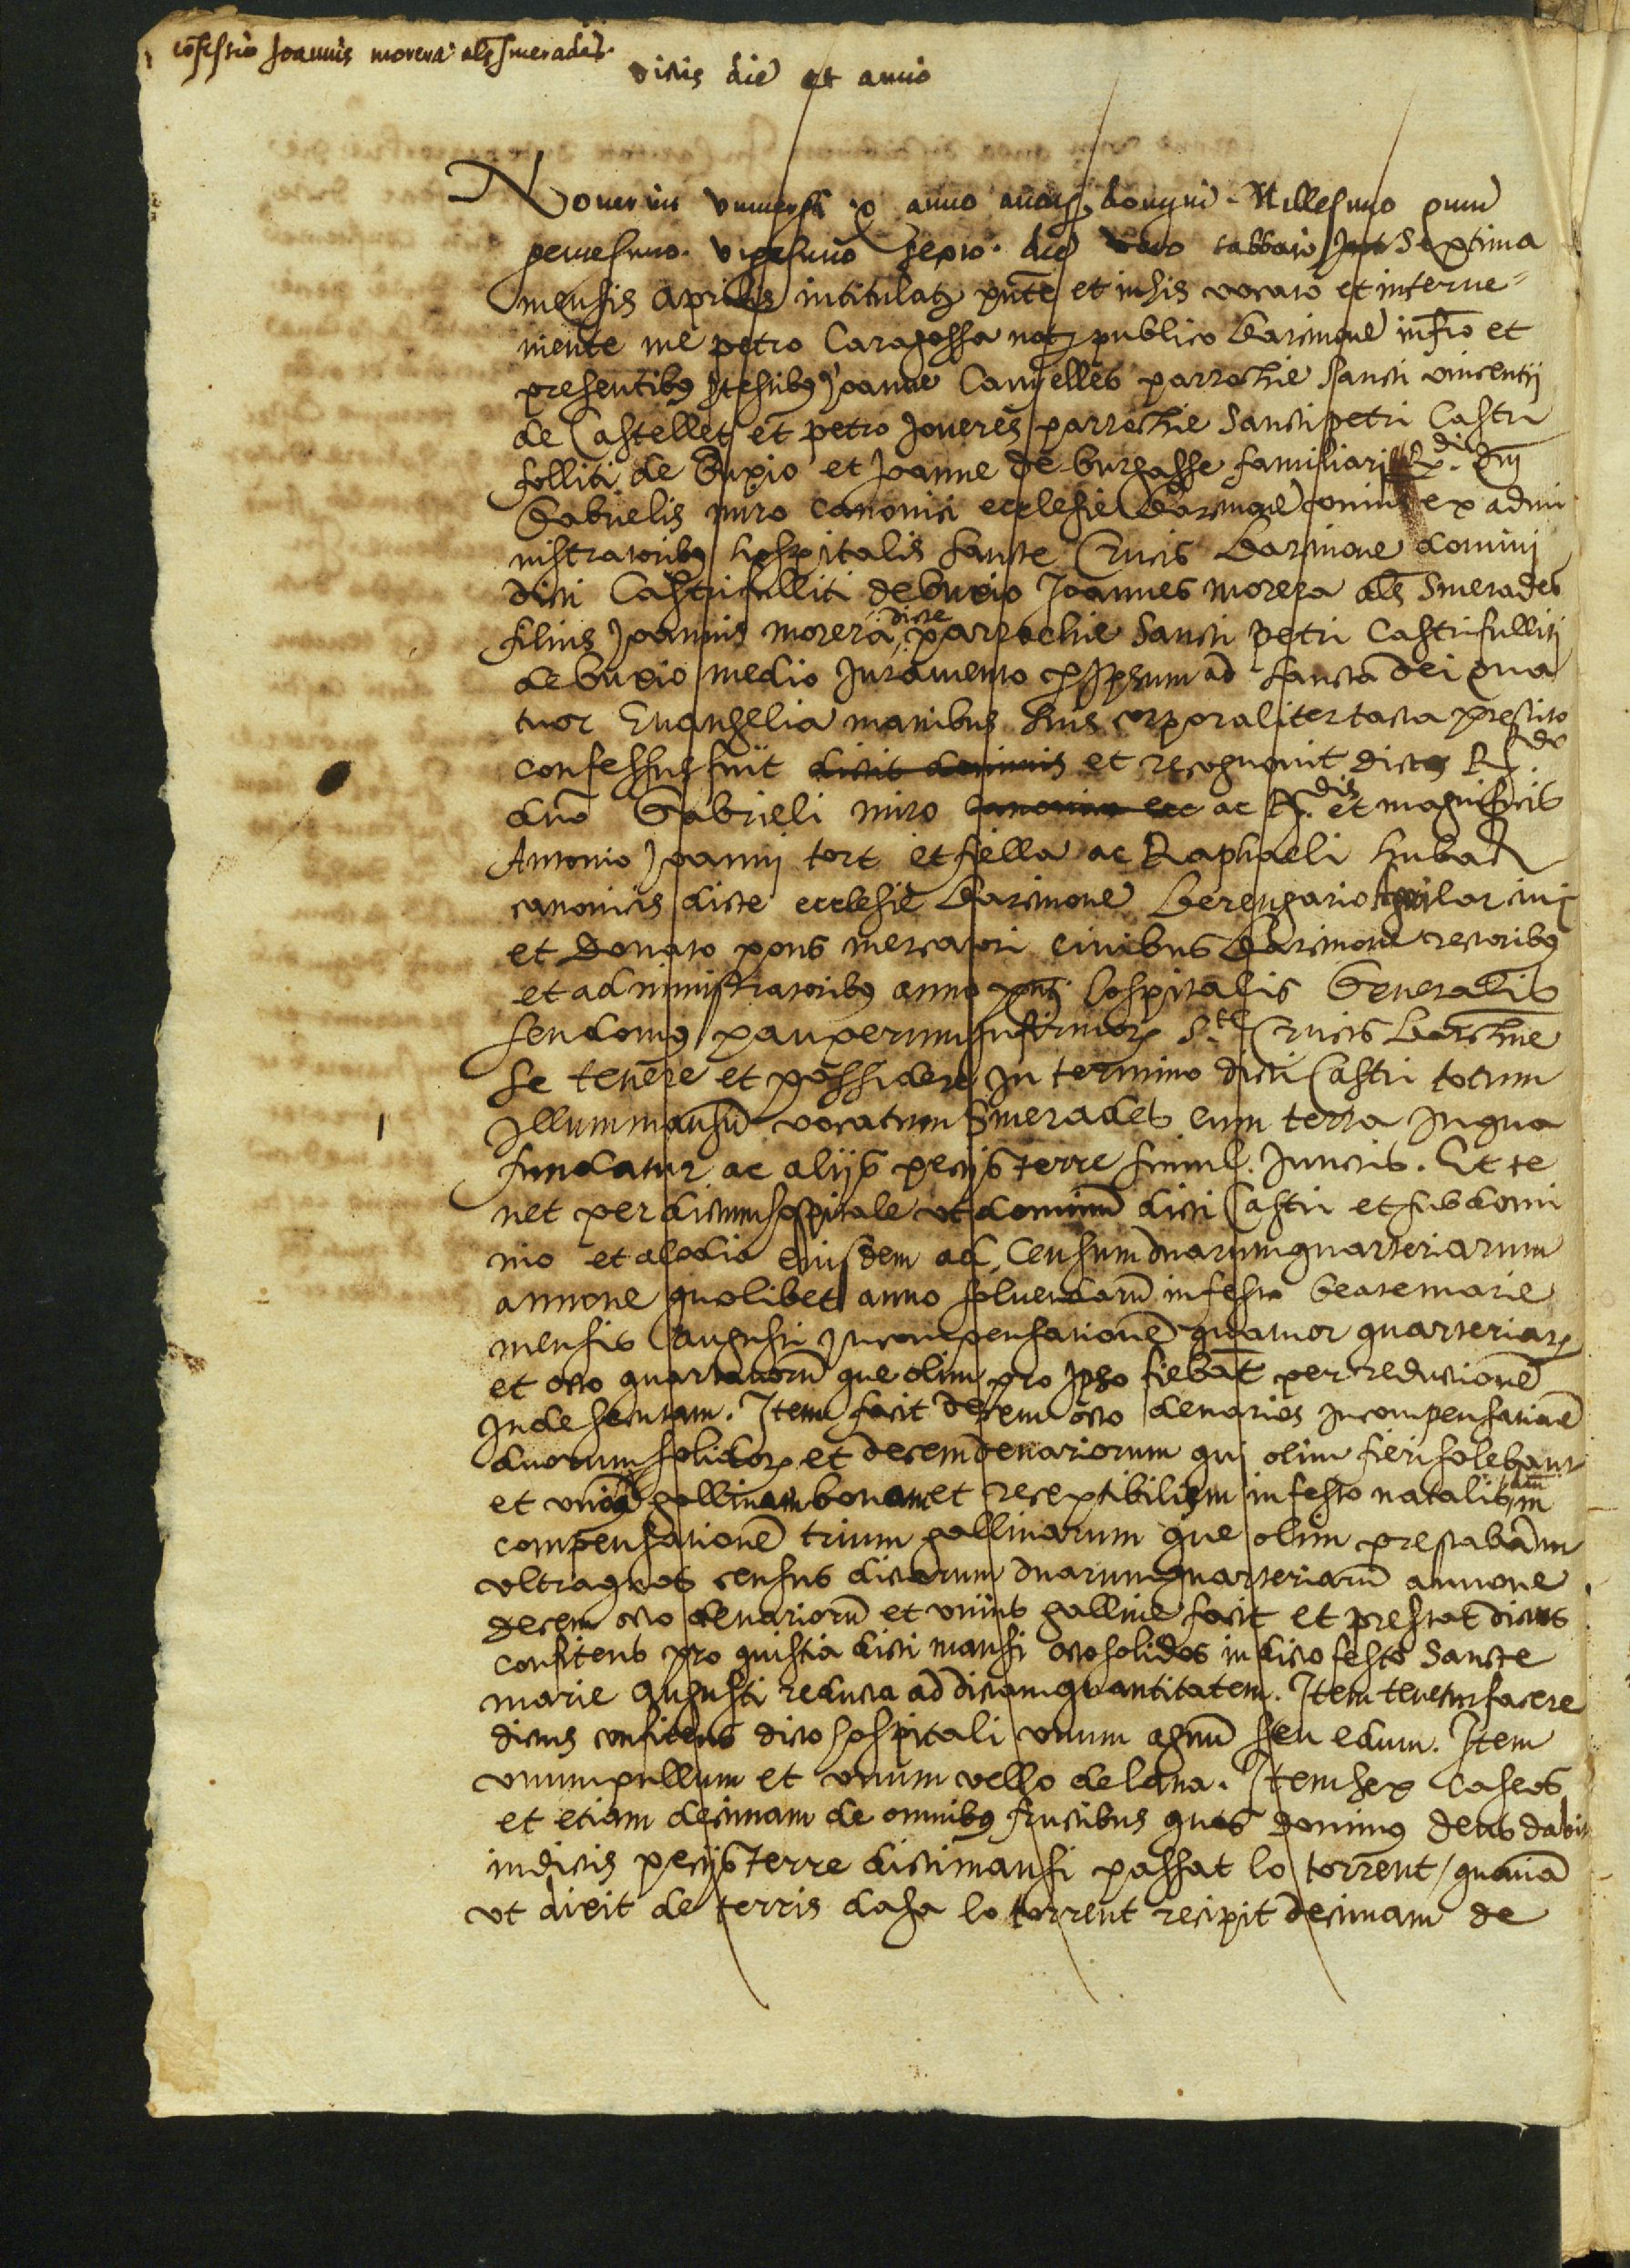 cõfessio Joannis morera als smerades
dictis die et anno
Noverint universi q anno a natt domini Millesimo quin
gentesimo vigesimo sexto die vero sabbati septima
mensis Aprilis intitulat pnte et in his vocato et interve
niente me petro Caragossa not publico barcinone infro et
presentibus testibus Joanne Canyelles parrochie sancti vincentii
de Castellet et petro Joveres parrochie Sancti petri Castri
folliti de buxio et Joanne de burgasse familiari R.di dni
Gabrielis miro canonici ecclesie barcinone ex admi
nistratoribus hospitalis sancte Crucis barcinone domini
dicti Castrifulliti de buxio Joannes morera als Smerades
filius Joannis morera dicte parrochie sancti petri Castrifulliti
de buxio medio Juramento p Ipsum ad sancta dei qua
tuor Evangelia manibus suis corporaliter tacta prestito
confessus fuit dicit dominis et recognovit dictis R.do
dno Gabrieli miro canonico ecc ac R.dis et magnificis
Antonio Joanni tort et fiella ac Raphaeli hubach
canonicis dicte ecclesie barcinone berengario Aguilar civi
et Donato pons mercatori civibus barcinone rectoribus
et administratoribus anno pnti hospitalis Generalis
seu domus pauperum Infirmorum S.te Crucis barchine
se tenere et possidere In termino dicti Castri totum
Illum mansũ vocatum Smerades cum terra In qua
fundatur ac aliis peciis terre simul Junctis. Et te
net per dictum hospitale ut dominũ dicti Castri et sub domi
nio et alodio eiusdem ad Censum duarum quarteriarum
annone quolibet anno solvendarũ in festo beate marie
mensis Augusti In compensationẽ quatuor quarteriarum
et octo quartanorũ que olim pro Ipso fiebãt per reductionẽ
Inde secutam. Item facit decem octo denarios In compensationẽ
duorum solidorum et decem denariorum qui olim fieri solebant
et unam gallinam bonam et receptibilem in festo natalis dni in
compensationẽ trium gallinarum que olim prestabantur
ultra quos census dictarum duarum quarteriarũ annone
decem octo denariorũ et unius galline facit et prestat dictus
confitens pro quistia dicti mansi octo solidos in dicto festo Sancte
marie Augusti reducta ad dictam quantitatem. Item tenetur facere
dictus confitens dicto hospitali unum agnũ seu edum. Item
unum pullum et unum vello de lana. Item sex caseos
et etiam decimam de omnibus fructibus quos dominus deus dabit
in dictis peciis terre dicti mansi passat lo torrent / quoniã
ut dixit de terris dasa lo torrent recipit decimam de